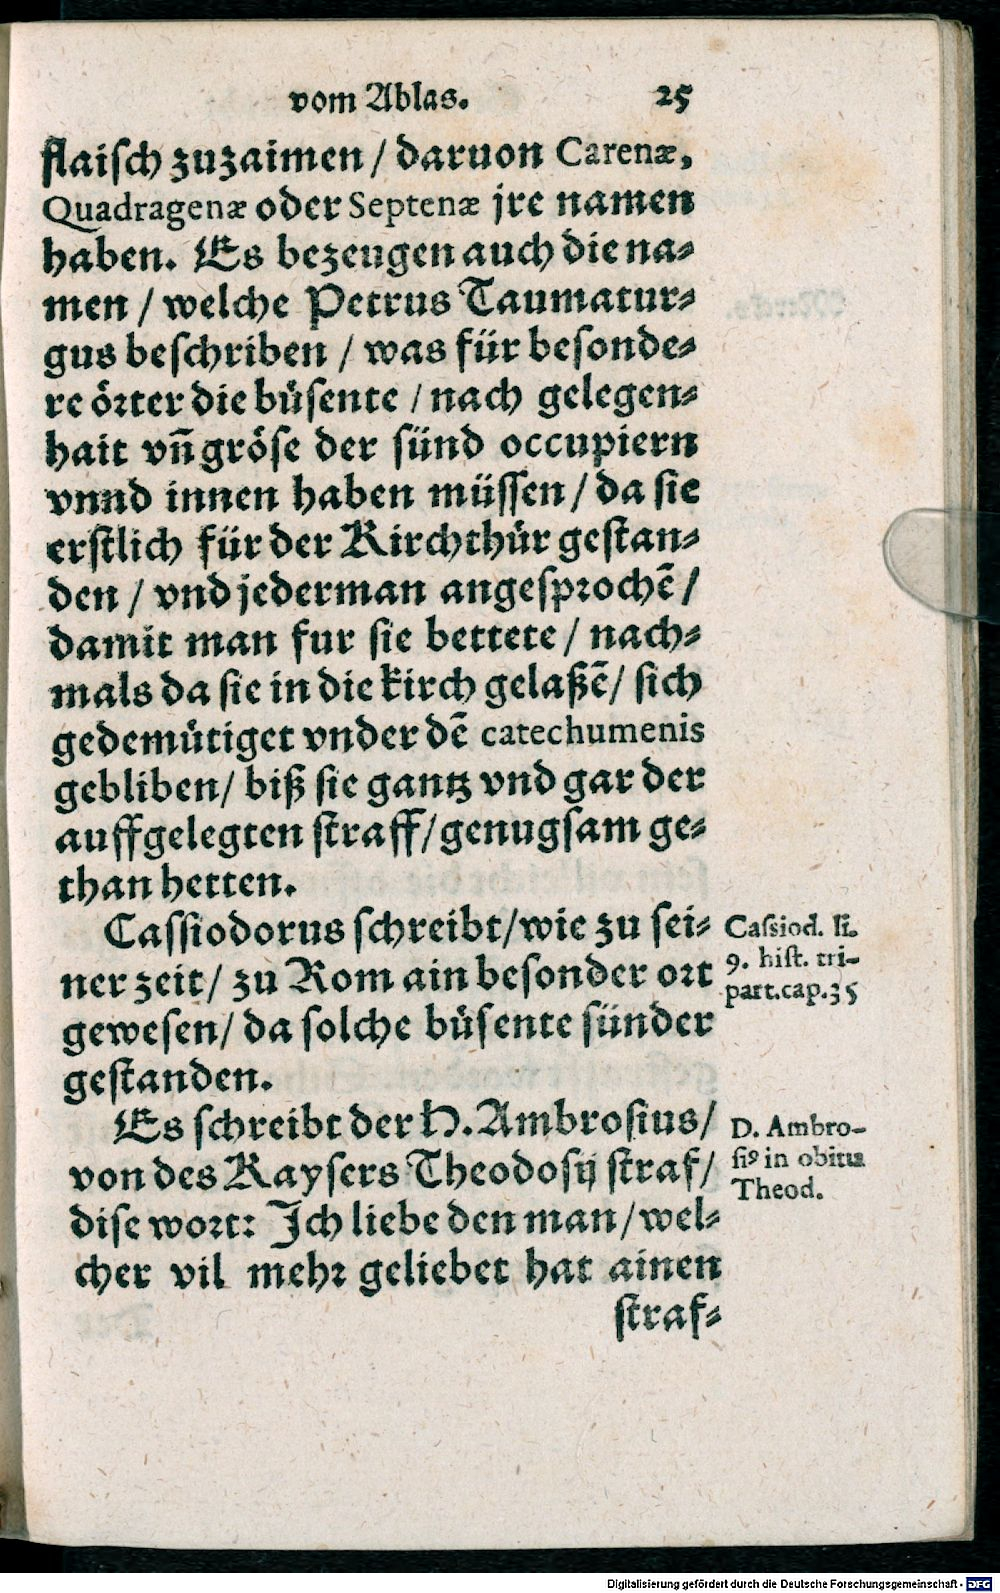 vom Ablas. 25
flaisch zuzaimen / daruon Carenæ,
Quadragenæ oder Septenæ jre namen
haben. Es bezeugen auch die na⸗
men / welche Petrus Taumatur⸗
gus beschriben / was für besonde⸗
re örter die bůsente / nach gelegen⸗
hait vñ gröse der sünd occupiern
vnnd innen haben müssen / da sie
erstlich für der Kirchthůr gestan⸗
den / vnd jederman angesprochẽ /
damit man fur sie bettete / nach⸗
mals da sie in die kirch gelaßẽ / sich
gedemůtiget vnder dẽ catechumenis
gebliben / biß sie gantz vnd gar der
auffgelegten straff / genugsam ge⸗
than hetten.
Cassiodorus schreibt / wie zu sei⸗
ner zeit / zu Rom ain besonder ort
gewesen / da solche bůsente sünder
gestanden.
Cassiod. li.
9. hist. tri-
part. cap. 35
Es schreibt der H. Ambrosius /
von des Kaysers Theodosij straf /
dise wort: Ich liebe den man / wel⸗
cher vil mehr geliebet hat ainen
straf⸗
D. Ambro-
siꝰ in obitu
Theod.
Digitalisierung gefördert durch die Deutsche Forschungsgemeinschaft - DFG